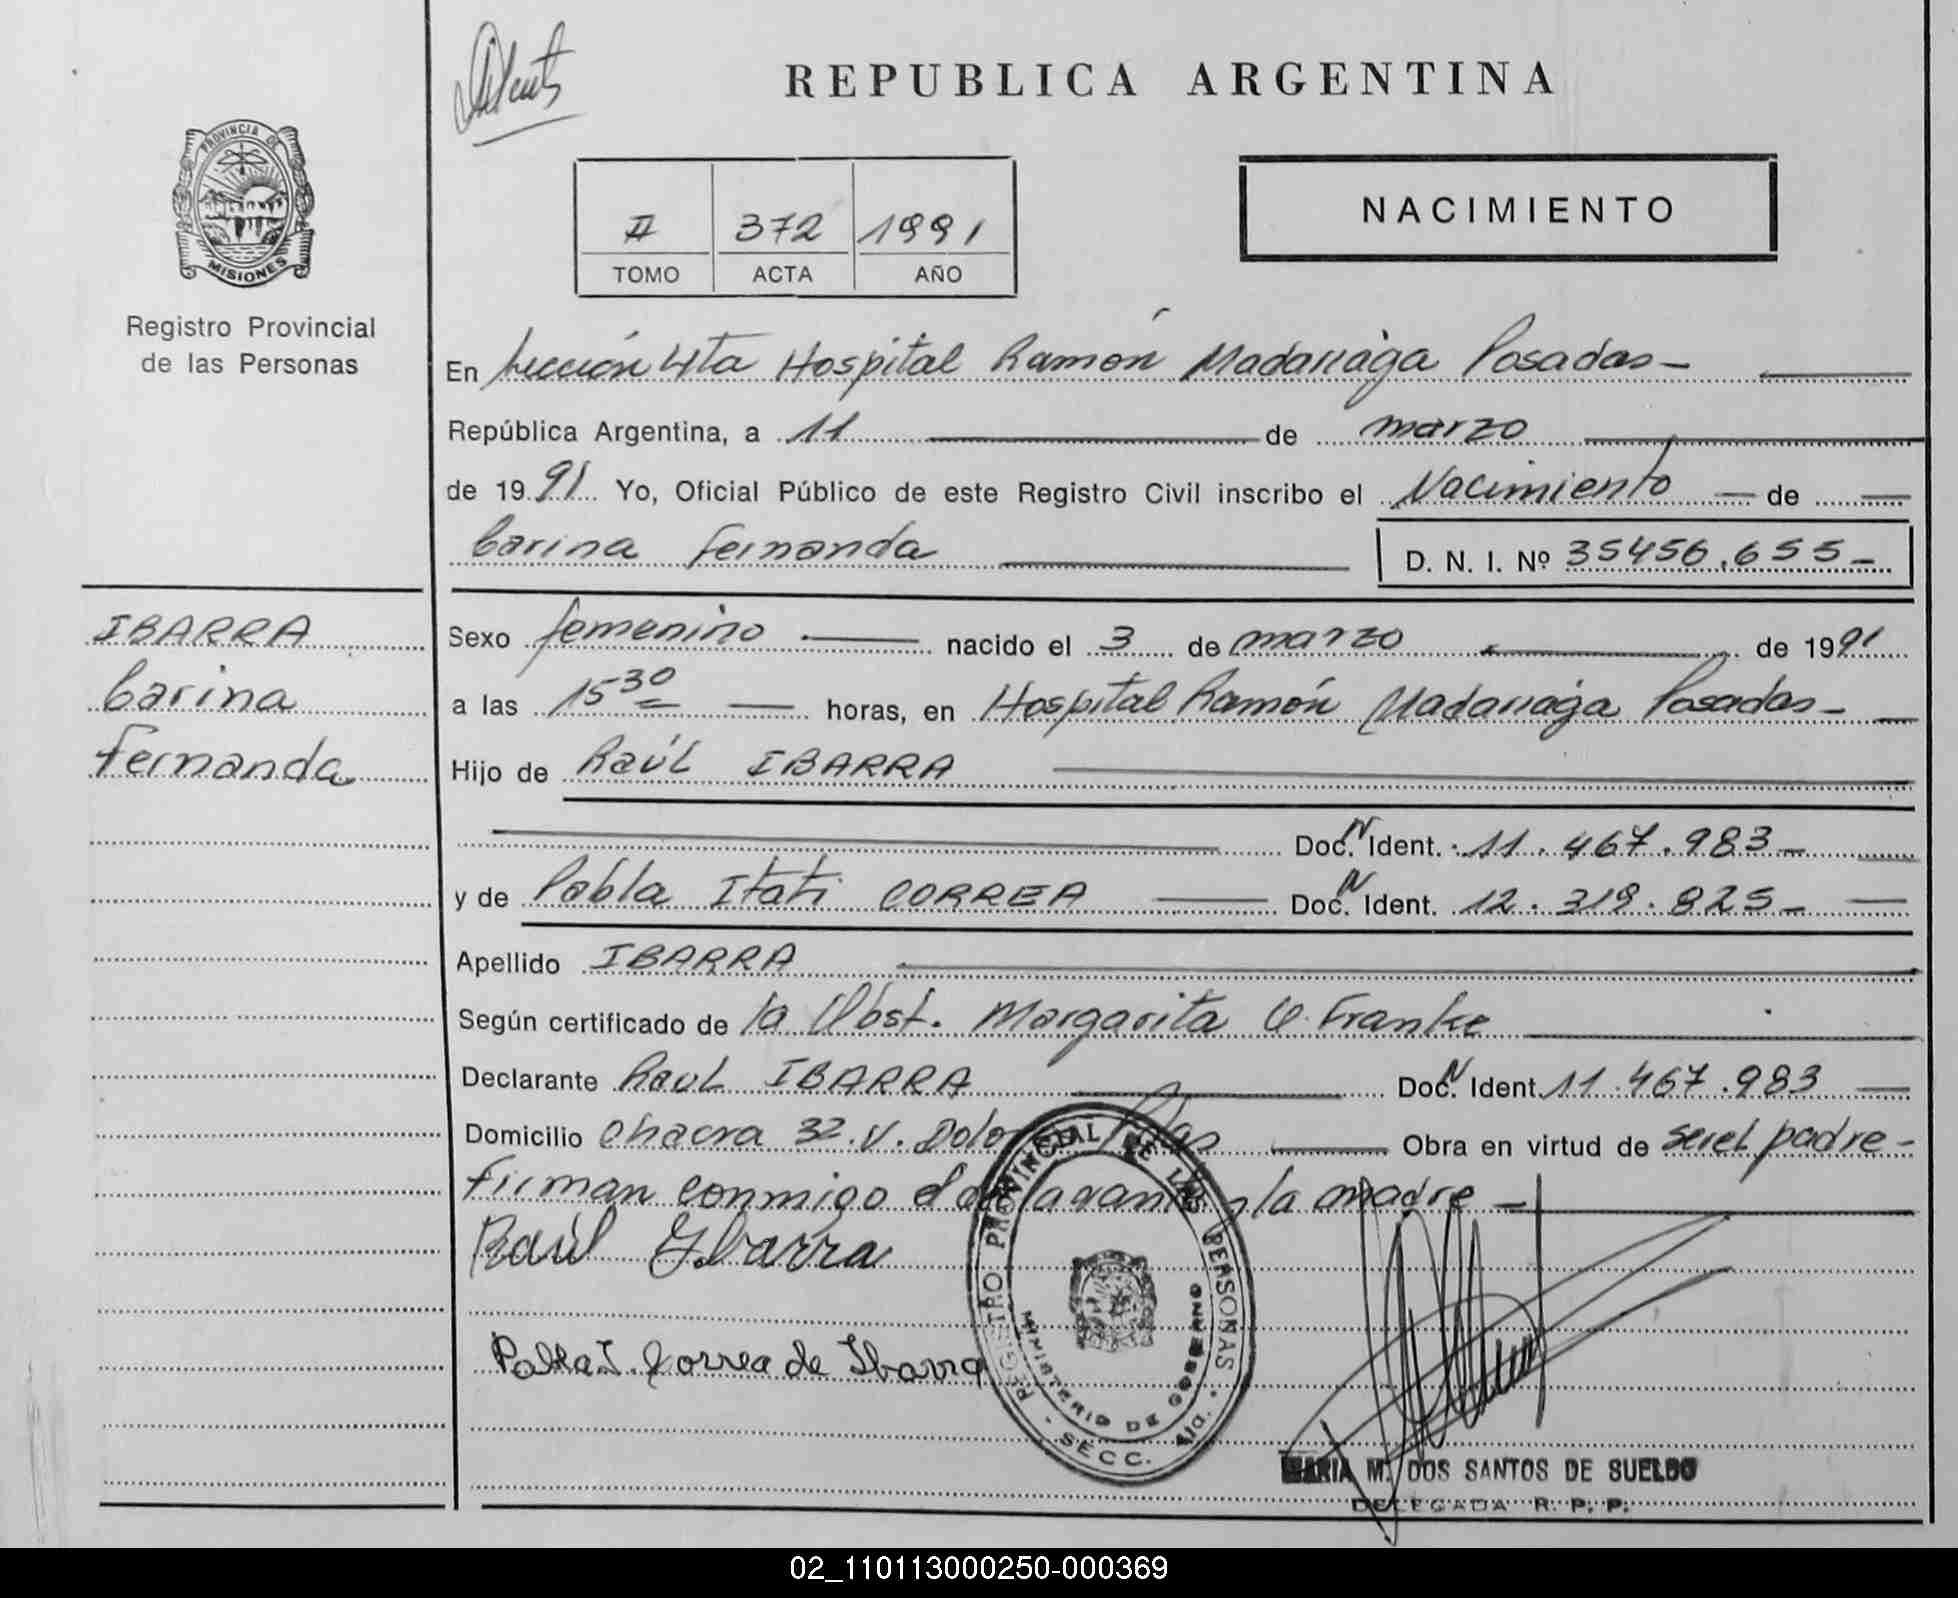 REPUBLICA ARGENTINA
PROVINCIA DE
MISIONES
Registro Provincial
de las Personas
II 372 1991
TOMO ACTA AÑO
NACIMIENTO
En Sección 4ta Hospital Ramón Madariaga Posadas-
República Argentina, a 11 de marzo
de 1991 Yo, Oficial Público de este Registro Civil inscribo el Nacimiento de
Carina Fernanda D. N. I. Nº 35456.655-
IBARRA
Carina
Fernanda
Sexo femenino nacido el 3 de marzo de 1991
a las 15 30 horas, en Hospital Ramón Madariaga Posadas-
Hijo de Raúl IBARRA
Doc. N Ident. 11.467.983-
y de Pabla Itati CORREA Doc. N Ident. 12.319.825-
Apellido IBARRA
Según certificado de la Obst. Margarita Franke
Declarante Raul IBARRA Doc. N Ident. 11.467.983
Domicilio Chacra 32. V. Obra en virtud de ser el padre-
Firman conmigo el la madre-
Raúl Ybarra
Pabla I. Correa de Ibarra
REGISTRO PROVINCIAL DE LAS PERSONAS
MINISTERIO DE GOBIERNO
- SECC. 4ta. -
MARIA M. DOS SANTOS DE SUELDO
DELEGADA R. P. P.
02_110113000250-000369